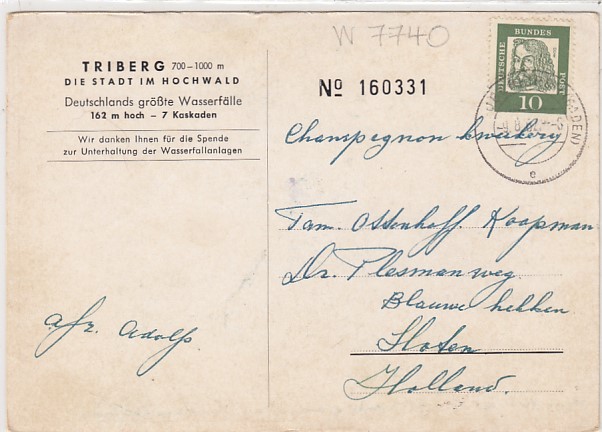 W 7740
TRIBERG 700–1000 m
DIE STADT IM HOCHWALD
Deutschlands größte Wasserfälle
162 m hoch – 7 Kaskaden
Wir danken Ihnen für die Spende
zur Unterhaltung der Wasserfallanlagen
Nº 160331
DEUTSCHE BUNDES POST
10
BADEN)
e
Champegnon kwekery
Fam. Ossenhoff. Koopman.
Dr. Plesmanweg.
Blauwe hekken
Sloten
Holland.
afz. Adolfs.